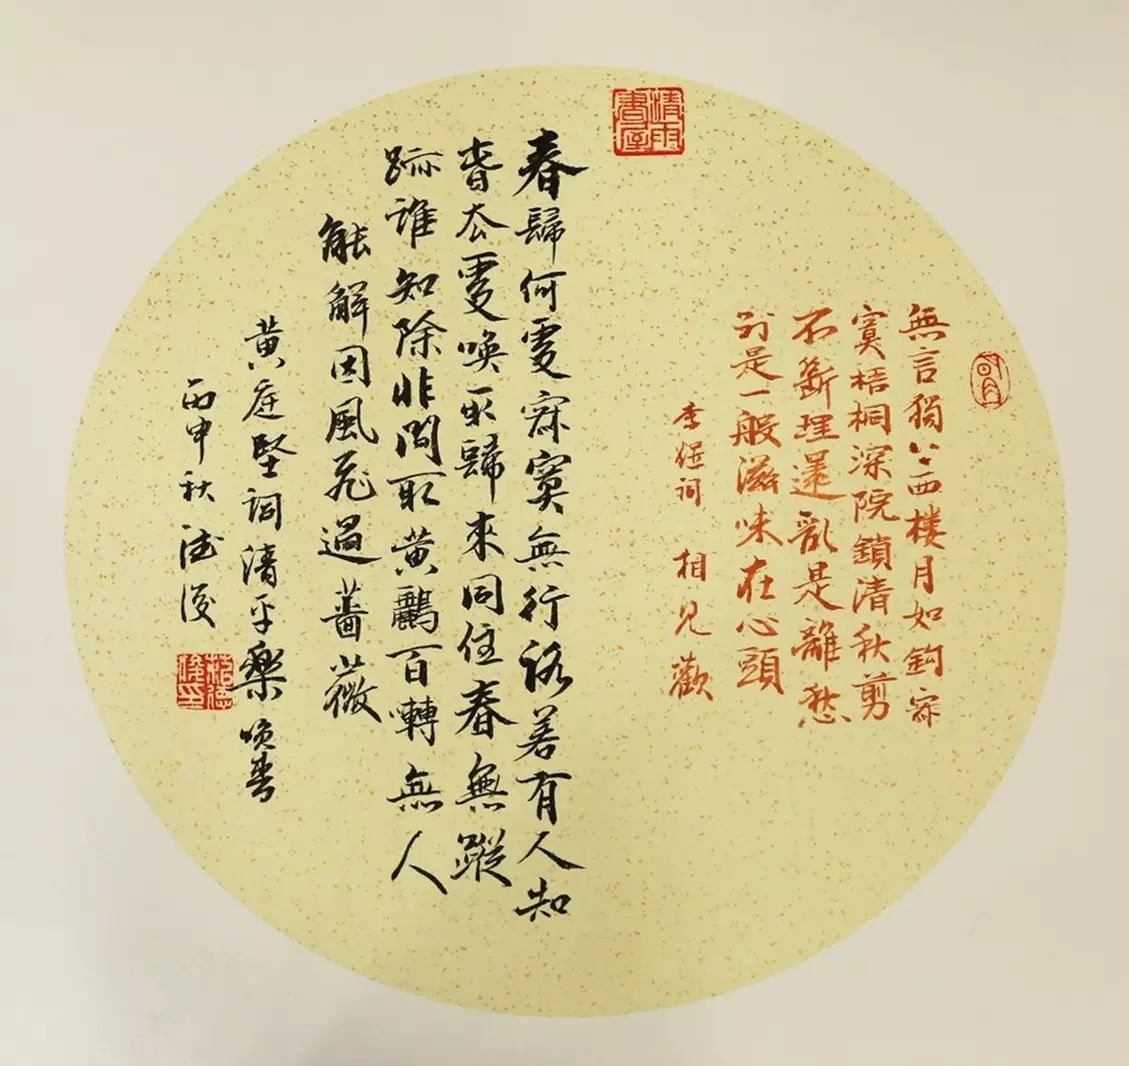 無言獨上西楼月如鈎寂
寞梧桐深院鎖清秋剪
不斷理還亂是離愁
別是一般滋味在心頭
李煜词 相見歡
清雨書屋
春歸何處寂寞無行路若有人知
春去處喚取歸來同住春無蹤
跡誰知除非問取黃鸝百囀無人
能解因風飛過薔薇
黃庭堅詞清平樂晚春
丙申秋德俊